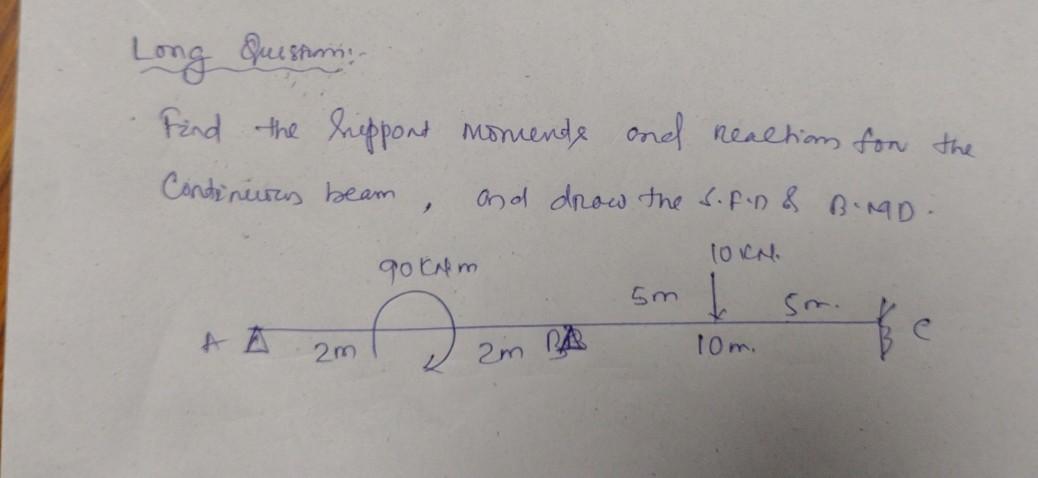 Long Question:-
Find the Support moments and reactions for the
Continuous beam, and draw the S.F.D & B.M.D.
10 KN.
90 KNm
5m 5m.
A 2m 2m B 10m. C